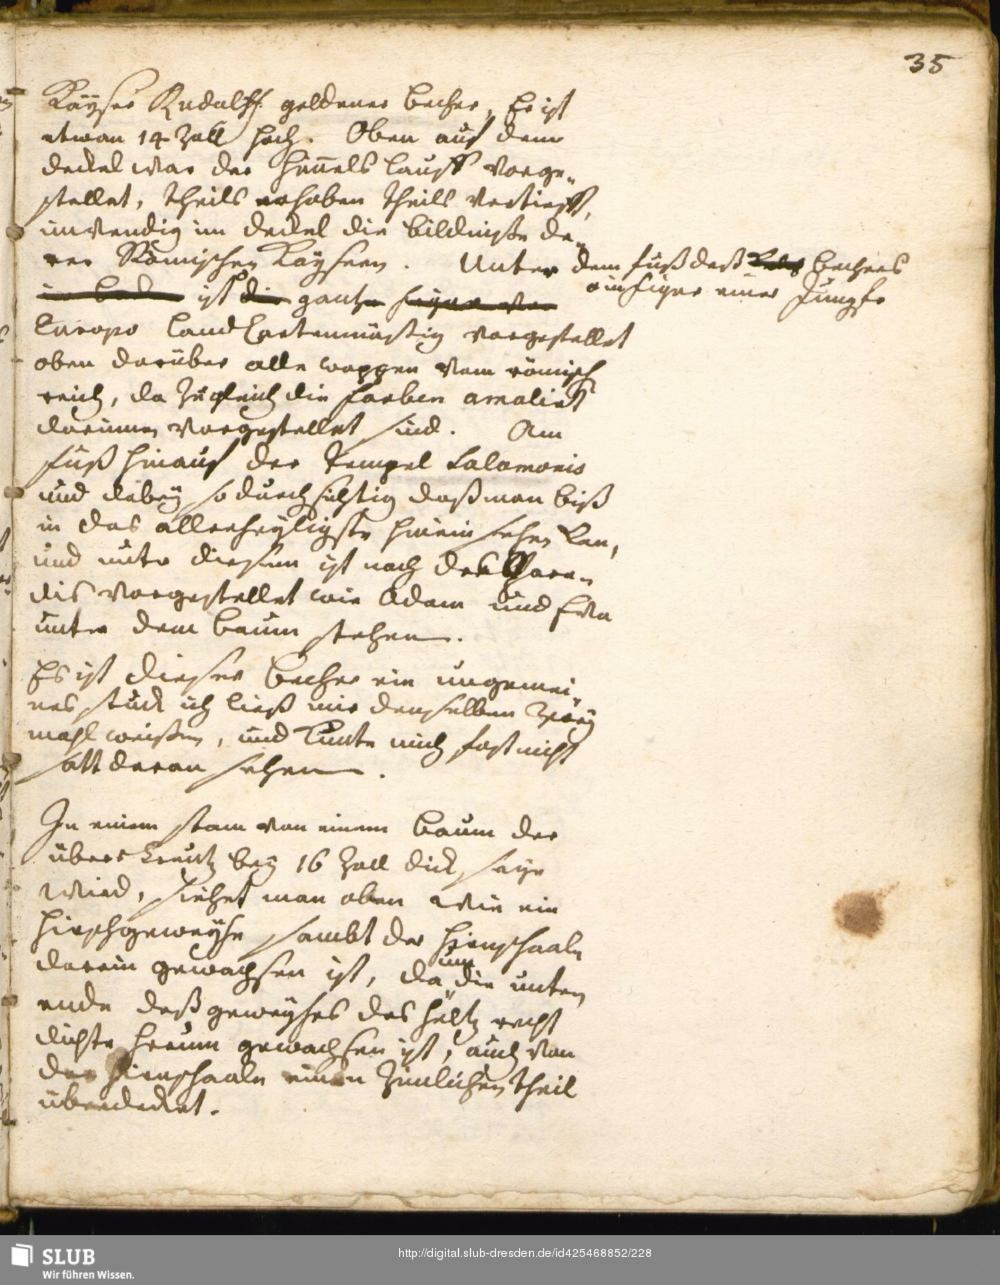 35
Kaÿser Rudolff. goldener becher, Es ist
etwan 14 Zoll hoch. Oben auf dem
deckel war der Himels Lauff vorge-
stellet, theils erhoben theils vertiefft,
inwendig im deckel die bildniße de-
rer Römischen Kaÿsern. Unter dem fuß deß bechers
ist gantz in figur einer Jungfr
Europa Landcartenmäßig vorgestellet
oben darüber alle wappen vom römisch
reich, da zugleich die farben amalirt
darinnen vorgestellet sind. Am
fuß hinauf der Tempel Salamonis
und dabeÿ so durchsichtig daß man biß
in das allerheÿligste hinein sehen kan,
und unter diesem ist noch das Para-
dis vorgestellet wie Adam und Eva
unter dem baum stehen.
Es ist dieser becher ein ungemei-
nes stuck ich ließ mir denselben zweÿ
mahl weisen, und kunte mich fast nicht
satt daran sehen.
In einem stam von einem baum der
übers Creutz beÿ 16 Zoll dick seyn
wird, siehet man oben wie ein
Hirschgeweÿhe sambt der Hirnschaaln
darein gewachsen ist, da um die untern
ende deß geweÿhes das holtz recht
dichte herum gewachsen ist, auch von
der Hirnschaaln einen zimlichen theil
überdecket.
SLUB
Wir führen Wissen.
http://digital.slub-dresden.de/id425468852/228